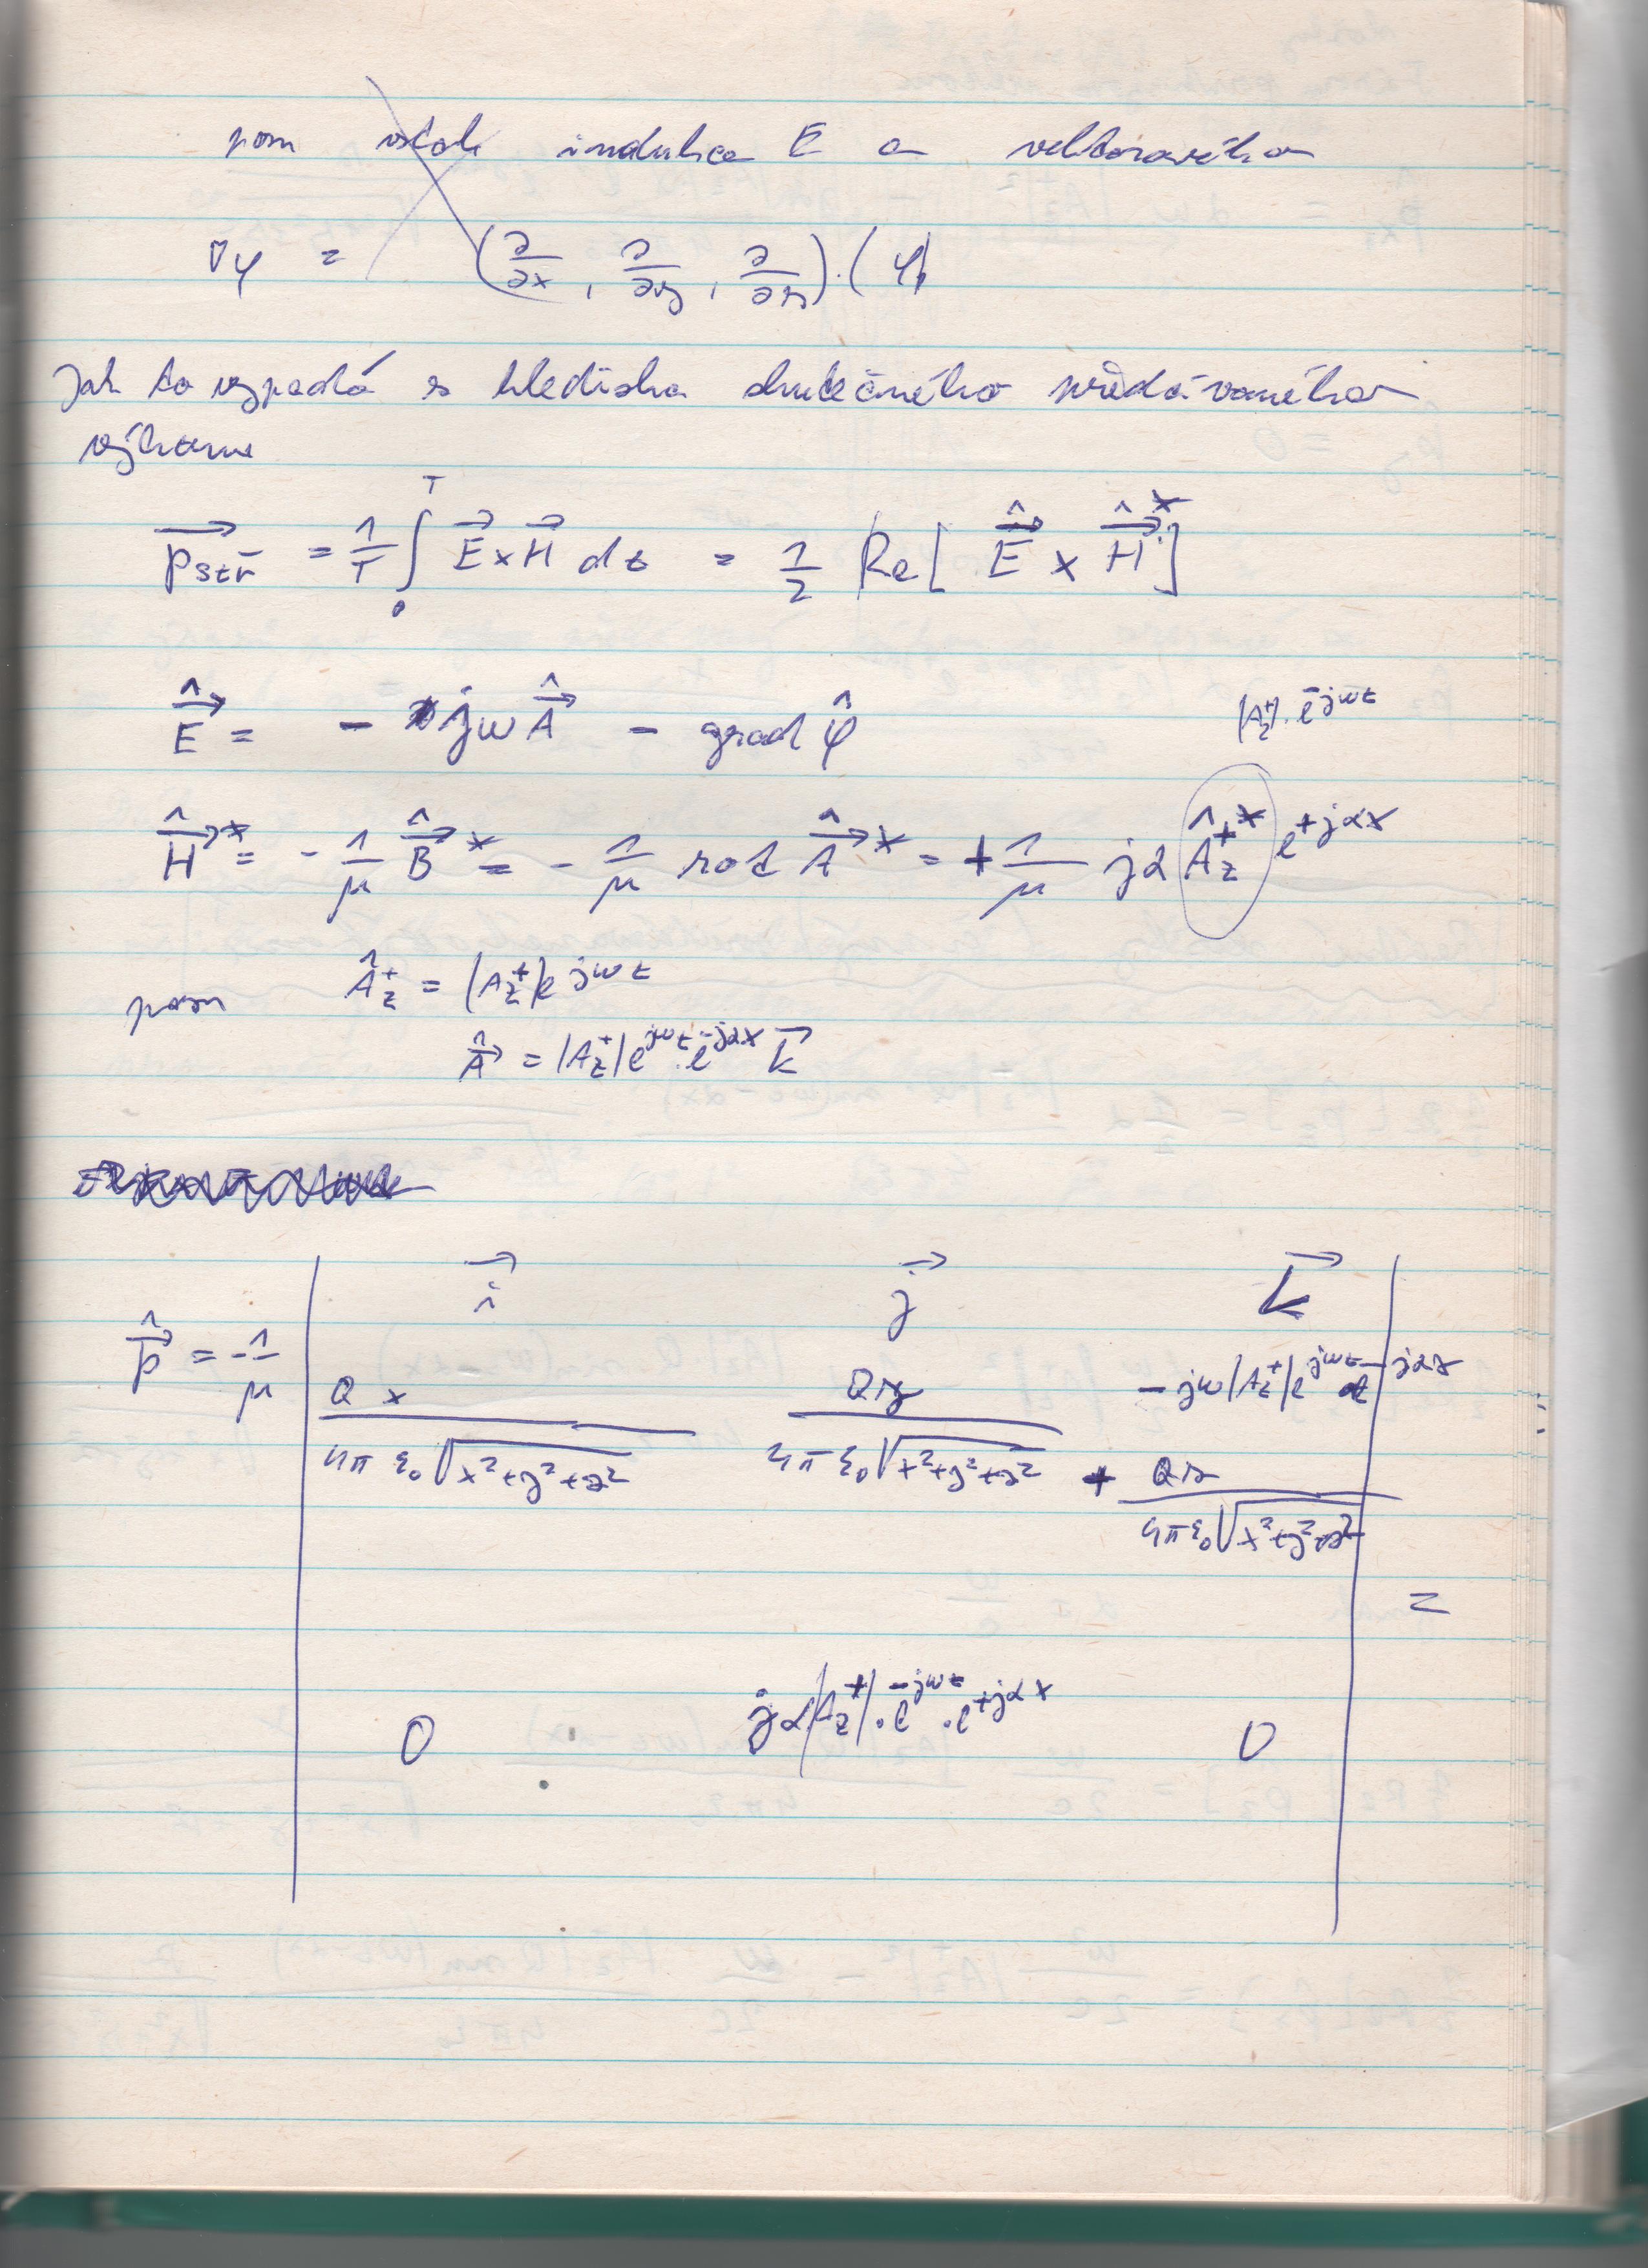 pom vztah indukce E a vektorového
∇φ = (∂/∂x, ∂/∂y, ∂/∂z)·(φ
Jak to vypadá z hlediska skutečného předávaného
výkonu
p⃗stř = 1/T ∫₀ᵀ E⃗ × H⃗ dt = 1/2 Re[ Ê⃗ × Ĥ⃗* ]
|Az⁺|·e^-jωt
Ê⃗ = - jωÂ⃗ - grad φ̂
Ĥ⃗* = - 1/μ B̂⃗* = - 1/μ rot Â⃗* = + 1/μ jα Âz⁺* e^+jαx
pom Âz⁺ = |Az⁺| e^jωt
Â⃗ = |Az⁺| e^jωt · e^-jαx k⃗
i⃗ j⃗ k⃗
p̂⃗ = -1/μ | Qx / 4πε₀√(x²+y²+z²) Qy / 4πε₀√(x²+y²+z²) -jω|Az⁺|e^jωt e^-jαx + Qz / 4πε₀√(x²+y²+z²) | =
0 jα|Az⁺|·e^-jωt·e^+jαx 0